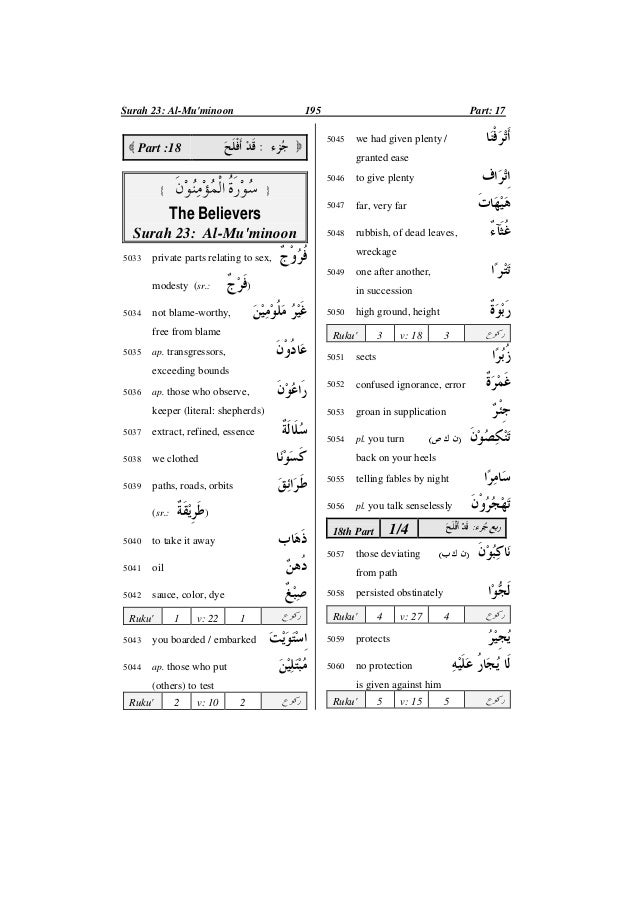 Surah 23: Al-Mu'minoon 195 Part: 17
﴾ Part :18 جُزء : قَدْ أَفْلَحَ ﴿
{ سُوْرَةُ الْمُؤْمِنُوْنَ }
The Believers
Surah 23: Al-Mu'minoon
5033 private parts relating to sex, فُرُوْجٌ
modesty (sr.: فَرْجٌ)
5034 not blame-worthy, غَيْرُ مَلُوْمِيْنَ
free from blame
5035 ap. transgressors, عَادُوْنَ
exceeding bounds
5036 ap. those who observe, رَاعُوْنَ
keeper (literal: shepherds)
5037 extract, refined, essence سُلَالَةٌ
5038 we clothed كَسَوْنَا
5039 paths, roads, orbits طَرَائِقَ
(sr.: طَرِيْقَةٌ)
5040 to take it away ذَهَاب
5041 oil دُهْنٌ
5042 sauce, color, dye صِبْغٌ
Ruku' 1 v: 22 1 ركوع
5043 you boarded / embarked اِسْتَوَيْتَ
5044 ap. those who put مُبْتَلِيْنَ
(others) to test
Ruku' 2 v: 10 2 ركوع
5045 we had given plenty / أَتْرَفْنَا
granted ease
5046 to give plenty اِتْرَاف
5047 far, very far هَيْهَاتَ
5048 rubbish, of dead leaves, غُثَآءً
wreckage
5049 one after another, تَتْرًا
in succession
5050 high ground, height رَبْوَةٌ
Ruku' 3 v: 18 3 ركوع
5051 sects زُبُرًا
5052 confused ignorance, error غَمْرَةٌ
5053 groan in supplication جِئْرٌ
5054 pl. you turn (ن ك ص) تَنْكِصُوْنَ
back on your heels
5055 telling fables by night سَامِرًا
5056 pl. you talk senselessly تَهْجُرُوْنَ
18th Part 1/4 ربع جُزء: قَدْ أَفْلَحَ
5057 those deviating (ن ك ب) نَاكِبُوْنَ
from path
5058 persisted obstinately لَجُّوْا
Ruku' 4 v: 27 4 ركوع
5059 protects يُجِيْرُ
5060 no protection لَا يُجَارُ عَلَيْهِ
is given against him
Ruku' 5 v: 15 5 ركوع